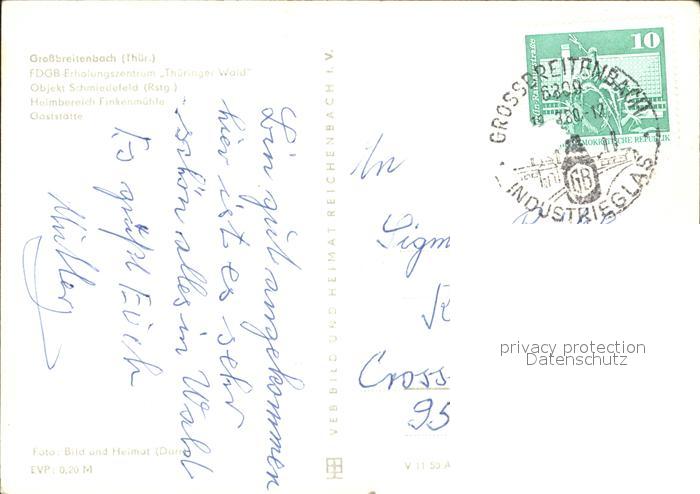 Großbreitenbach (Thür.)
FDGB-Erholungszentrum „Thüringer Wald"
Objekt Schmiedefeld (Rstg.)
Heimbereich Finkenmühle
Gaststätte
Bin gut angekommen
hier ist es sehr
schön alles in Wald
Es grüßt Euch
Mutter
Foto: Bild und Heimat
EVP: 0,20 M
VEB BILD UND HEIMAT REICHENBACH I. V.
V 11 50 A
10
DEMOKRATISCHE REPUBLIK
GROSSBREITENBACH
6309
INDUSTRIEGLAS
GB
An
Sigm
Cross
95
privacy protection
Datenschutz